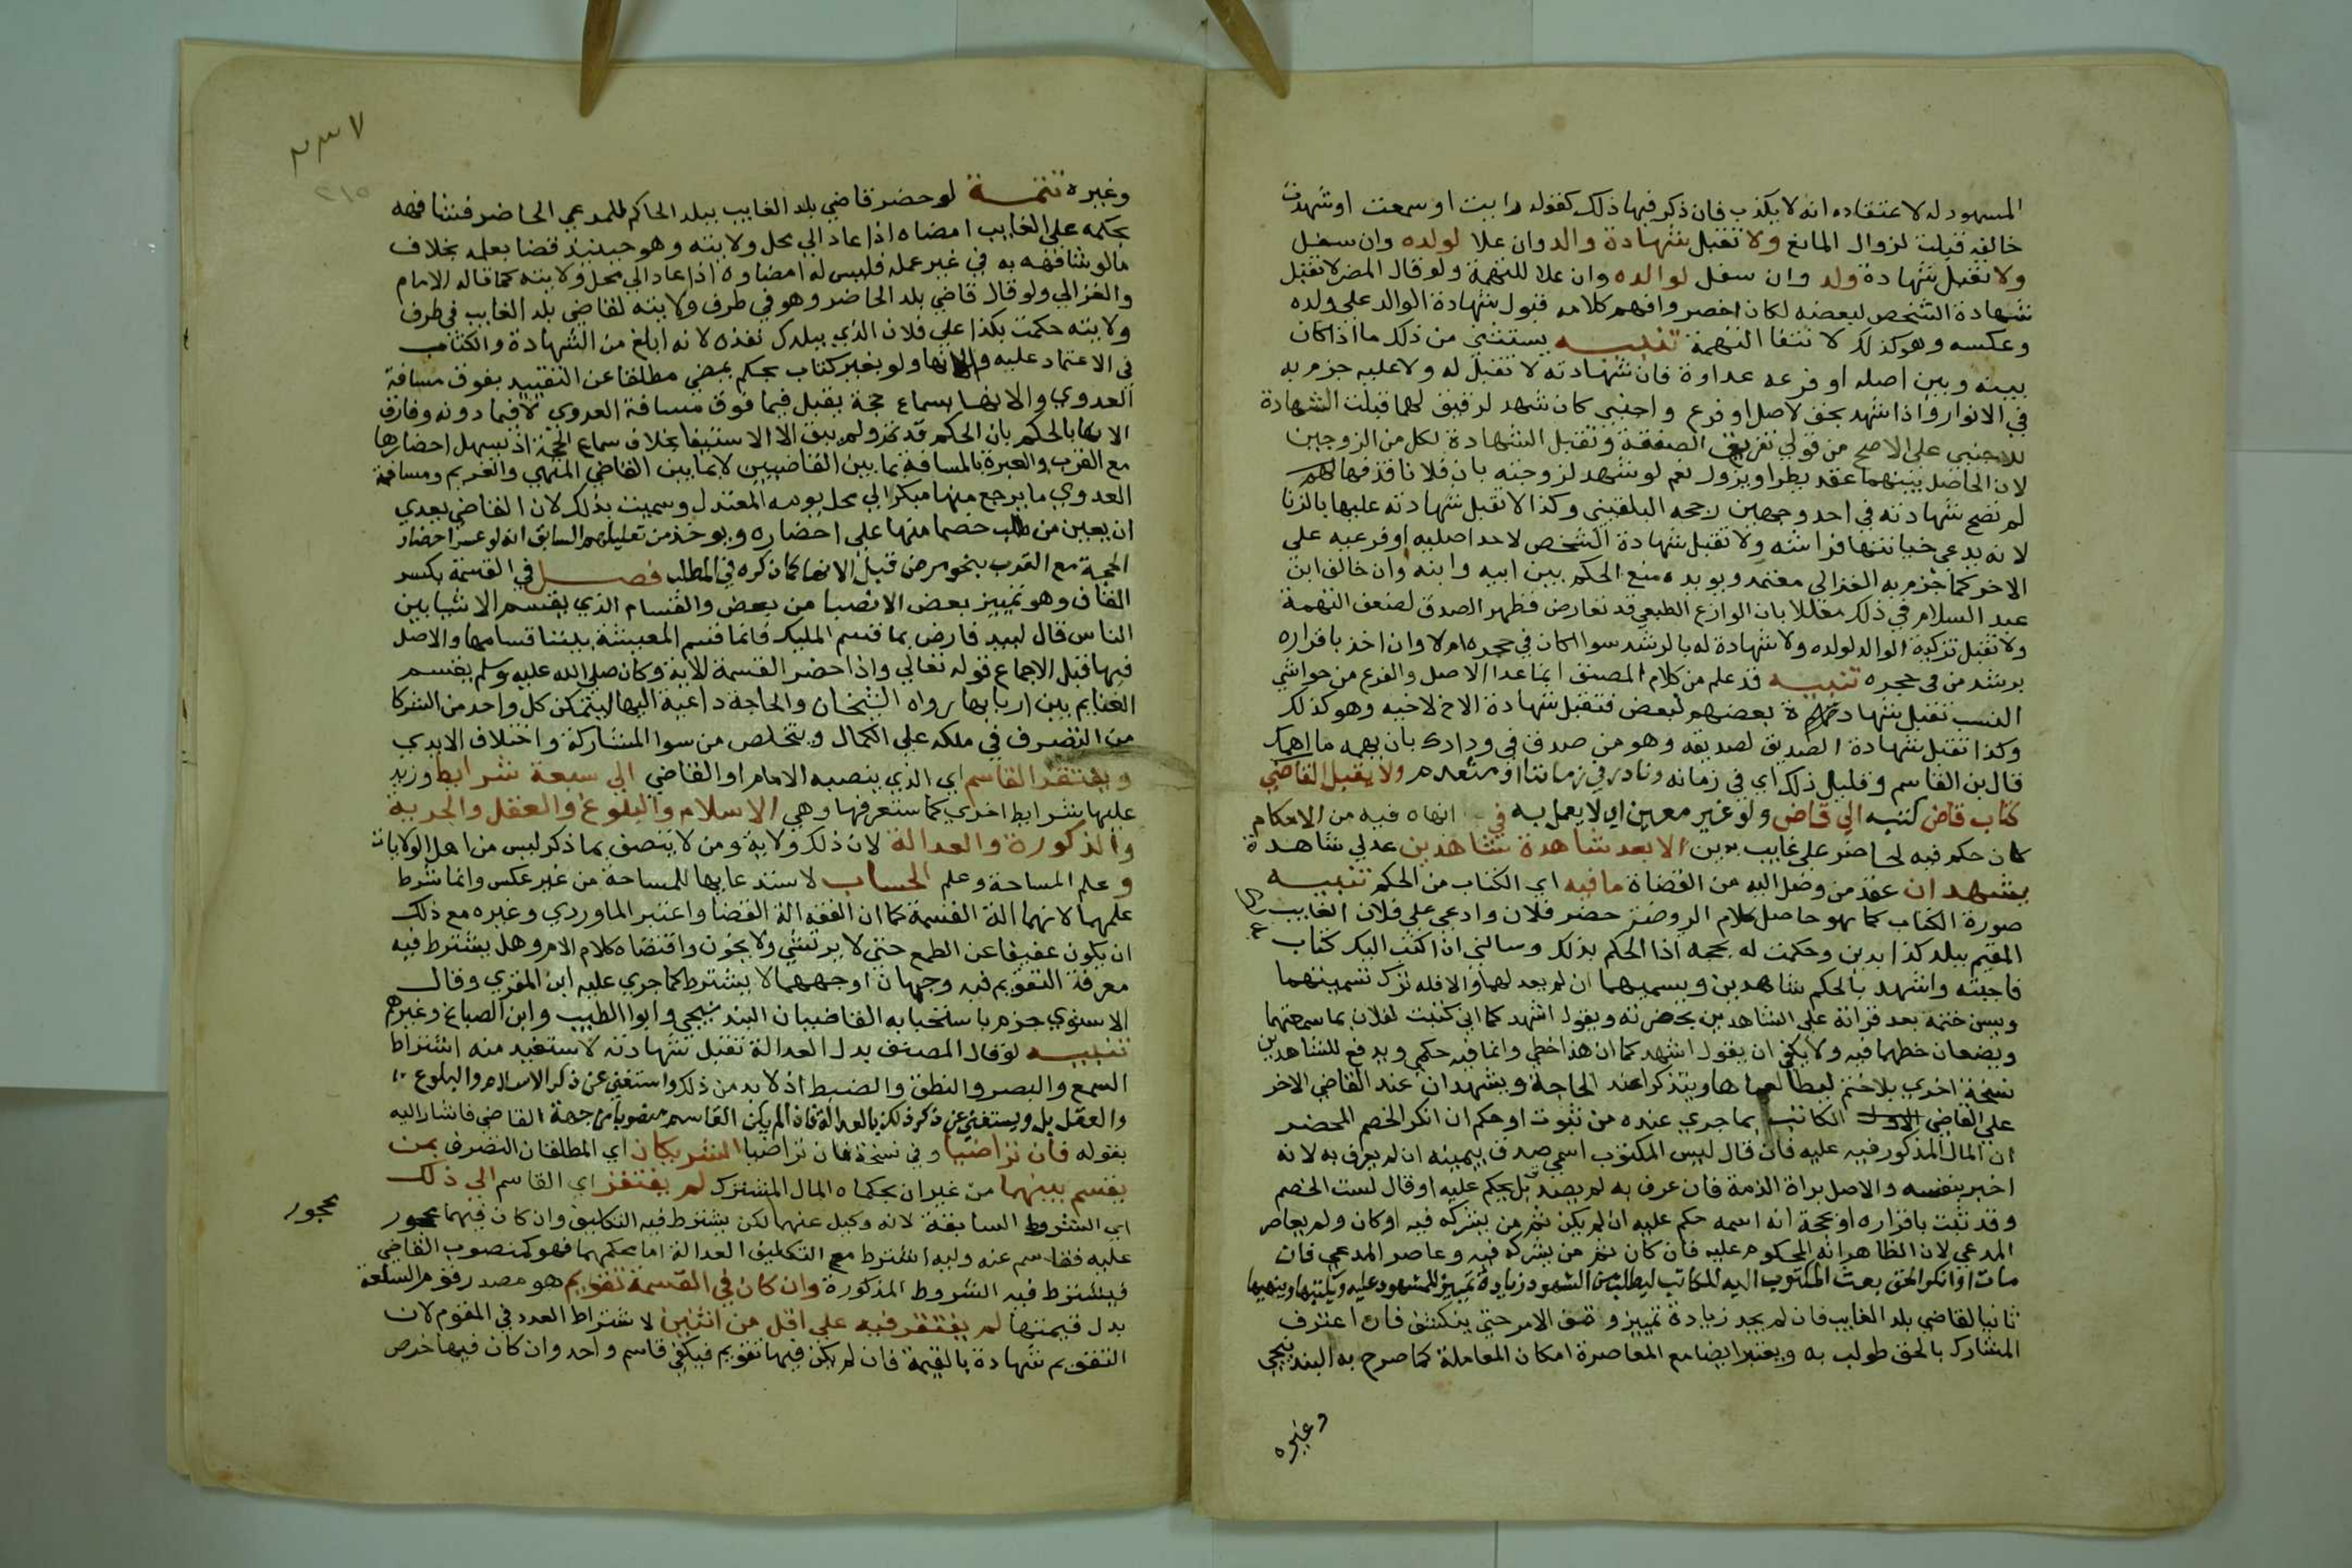 المشهود له لاعتقاده انه لا يكذب فان ذكر فيها ذلك كقوله رايت او سمعت او شهدت
خالفه قبلت لزوال المانع ولا تقبل شهادة والد وان علا لولده وان سفل
ولا تقبل شهادة ولد وان سفل لوالده وان علا للتهمة ولو قال المص لا تقبل
شهادة الشخص لبعضه لكان اخصر وافهم كلامه قبول شهادة الوالد على ولده
وعكسه وهو كذلك لانتفا التهمة تنبيه يستثني من ذلك ما اذا كان
بينه وبين اصله او فرعه عداوة فان شهادته لا تقبل له ولا عليه جزم به
في الانوار واذا شهد بحق لاصل او فرع واجنبي كان شهد لرقيق لهما قبلت الشهادة
للاجنبي على الاصح من قولي تفريق الصفقة وتقبل الشهادة لكل من الزوجين
لان الحاصل بينهما عقد يطرا ويزول نعم لو شهد لزوجته بان فلانا قذفها
لم تصح شهادته في احد وجهين رجحه البلقيني وكذا لا تقبل شهادته عليها بالزنا
لانه يدعي خيانتها فراشه ولا تقبل شهادة الشخص لاحد اصليه او فرعيه على
الاخر كما جزم به الغزالي معتمد ويويده منع الحكم بين ابيه وابنه وان خالف ابن
عبد السلام في ذلك معللا بان الوازع الطبيعي قد تعارض فظهر الصدق لضعف التهمة
ولا تقبل تزكية الوالد لولده ولا شهادة له بالرشد سوا كان في حجره ام لا وان اخذ باقراره
برشد من في حجره تنبيه قد علم من كلام المصنف ان ما عدا الاصل والفرع من حواشي
النسب تقبل شهادة بعضهم لبعض فتقبل شهادة الاخ لاخيه وهو كذلك
وكذا تقبل شهادة الصديق لصديقه وهو من صدق في ودادك بان يهمه ما اهمك
قال بن القاسم وقليل ذلك اي في زمانه ونادر في زماننا او منعدم ولا يقبل القاضي
كتاب قاض كتبه الى قاض ولو غير معين اي لا يعمل به في انهاه فيه من الاحكام
كان حكم فيه لحاضر على غايب بدين الا بعد شهادة شاهدين عدلي شهادة
يشهدان عند من وصل اليه من القضاة ما فيه اي الكتاب من الحكم تنبيه
صورة الكتاب كما هو حاصل كلام الروضة حضر فلان وادعي على فلان الغايب
المقيم ببلد كذا بدين وحكمت له بحجه اذا الحكم بذلك وسالني ان اكتب اليك كتاب
فاجبته واشهد بالحكم شاهدين ويسميهما ان لم يعد لهما والا فله ترك تسميتهما
ويسن ختمه بعد قرائة على الشاهدين بحضرته ويقول اشهد كما اني كتبت لفلان بما سمعتهما
ويضعان خطهما فيه ولا يكفي ان يقول اشهد كما ان هذا خطي وان ما فيه حكمي ويدفع للشاهدين
نسخة اخرى بلا ختم ليطالعاها ويتذكرا عند الحاجة ويشهدان عند القاضي الاخر
على القاضي الكاتب بما جري عنده من ثبوت او حكم ان انكر الخصم المحضر
ان المال المذكور فيه عليه فان قال ليس المكتوب اسمي صدق بيمينه ان لم يعرف به لانه
اخبر بنفسه والاصل براة الذمة فان عرف به لم يصدق بل يحكم عليه او قال لست الخصم
وقد ثبت باقراره او بحجة انه اسمه حكم عليه ان لم يكن ثم من يشركه فيه او كان ولم يعاصر
المدعي لان الظاهر انه المحكوم عليه فان كان ثم من يشركه فيه وعاصر المدعي فان
مات او انكر الحق بعث المكتوب اليه للكاتب ليطلب من الشهود زيادة تمييز للمشهود عليه ويكتبها وينهيها
ثانيا لقاضي بلد الغايب فان لم يجد زيادة تمييز وقف الامر حتى ينكشف فان اعترف
المشارك بالحق طولب به ويعتبر ايضا مع المعاصرة امكان المعاملة كما صرح به البندنيجي
وغيره
٢٣٧
٢١٥
وغيره تتمة لو حضر قاضي بلد الغايب ببلد الحاكم للمدعي الحاضر فشافهه
بحكمه على الغايب امضاه اذا عاد الي محل ولايته وهو حينئذ قضا بعلمه بخلاف
ما لو شافهه به في غير عمله فليس له امضاوه اذا عاد الي محل ولايته كما قاله الامام
والغزالي ولو قال قاضي بلد الحاضر وهو في طرف ولايته لقاضي بلد الغايب في طرف
ولايته حكمت بكذا على فلان الذي ببلدك نفذه لانه ابلغ من الشهادة والكتاب
في الاعتماد عليه والانها ولو بغير كتاب بحكم يمضي مطلقا عن التقييد بفوق مسافة
العدوي والانها بسماع حجة يقبل فيما فوق مسافة العدوي لا فيما دونه وفارق
الانها بالحكم بان الحكم قد تم ولم يبق الا الاستيفا بخلاف سماع الحجة اذ يسهل احضارها
مع القرب والعبرة بالمسافة بما بين القاضيين لا بما بين القاضي المنهي والغريم ومسافة
العدوي ما يرجع منها مبكرا الي محل يومه المعتدل وسميت بذلك لان القاضي يعدي
ان يعين من طلب خصما منها على احضاره ويوخذ من تعليلهم السابق انه لو عسر احضار
الحجة مع القرب بنحو مرض قبل الانها كما ذكره في المطلب فصل في القسمة بكسر
القاف وهو تمييز بعض الانصبا من بعض والقسام الذي يقسم الاشيا بين
الناس قال لبيد فارض بما قسم المليك فانما قسم المعيشة بيننا قسامها والاصل
فيها قبل الاجماع قوله تعالي واذا حضر القسمة الاية وكان صلى الله عليه وسلم يقسم
الغنايم بين اربابها رواه الشيخان والحاجة داعية اليها ليتمكن كل واحد من الشركا
من التصرف في ملكه على الكمال ويتخلص من سوا المشاركة واختلاف الايدي
ويفتقر القاسم اي الذي ينصبه الامام او القاضي الي سبعة شرايط وزيد
عليها شرايط اخري كما ستعرفها وهي الاسلام والبلوغ والعقل والحرية
والذكورة والعدالة لان ذلك ولاية ومن لا يتصف بما ذكر ليس من اهل الولايات
و علم المساحة وعلم الحساب لاستدعايها للمساحة من غير عكس وانما شرط
علمهما لانهما الة القسمة كما ان الفقه الة القضا واعتبر الماوردي وغيره مع ذلك
ان يكون عفيفا عن الطمع حتى لا يرتشي ولا يخون واقتضاه كلام الام وهل يشترط فيه
معرفة التقويم فيه وجهان اوجههما لا يشترط كما جري عليه ابن المقري وقال
الاسنوي جزم باستحبابه القاضيان البندنيجي وابوا الطيب وابن الصباغ وغيرهم
تنبيه لو قال المصنف بدل العدالة تقبل شهادته لاستفيد منه اشتراط
السمع والبصر والنطق والضبط اذ لا بد من ذلك واستغني عن ذكر الاسلام والبلوغ
والعقل بل ويستغني عن ذكر ذلك بالعدالة فان لم يكن القاسم منصوبا من جهة القاضي فاشار اليه
بقوله فان تراضيا وفي نسخة فان تراضيا الشريكان اي المطلقان التصرف بمن
يقسم بينهما من غير ان يحكماه المال المشترك لم يفتقر اي القاسم الي ذلك
اي الشروط السابقة لانه وكيل عنهما لكن يشترط فيه التكليف وان كان فيهما محجور
محجور
عليه فقاسم عنه وليه اشترط مع التكليف العدالة اما محكمهما فهو كمنصوب القاضي
فيشترط فيه الشروط المذكورة وان كان في القسمة تقويم هو مصدر قوم السلعة
بدل قيمتها لم يفتقر فيه على اقل من اثنين لاشتراط العدد في المقوم لان
التقويم شهادة بالقيمة فان لم يكن فيها تقويم فيكفي قاسم واحد وان كان فيها خرص